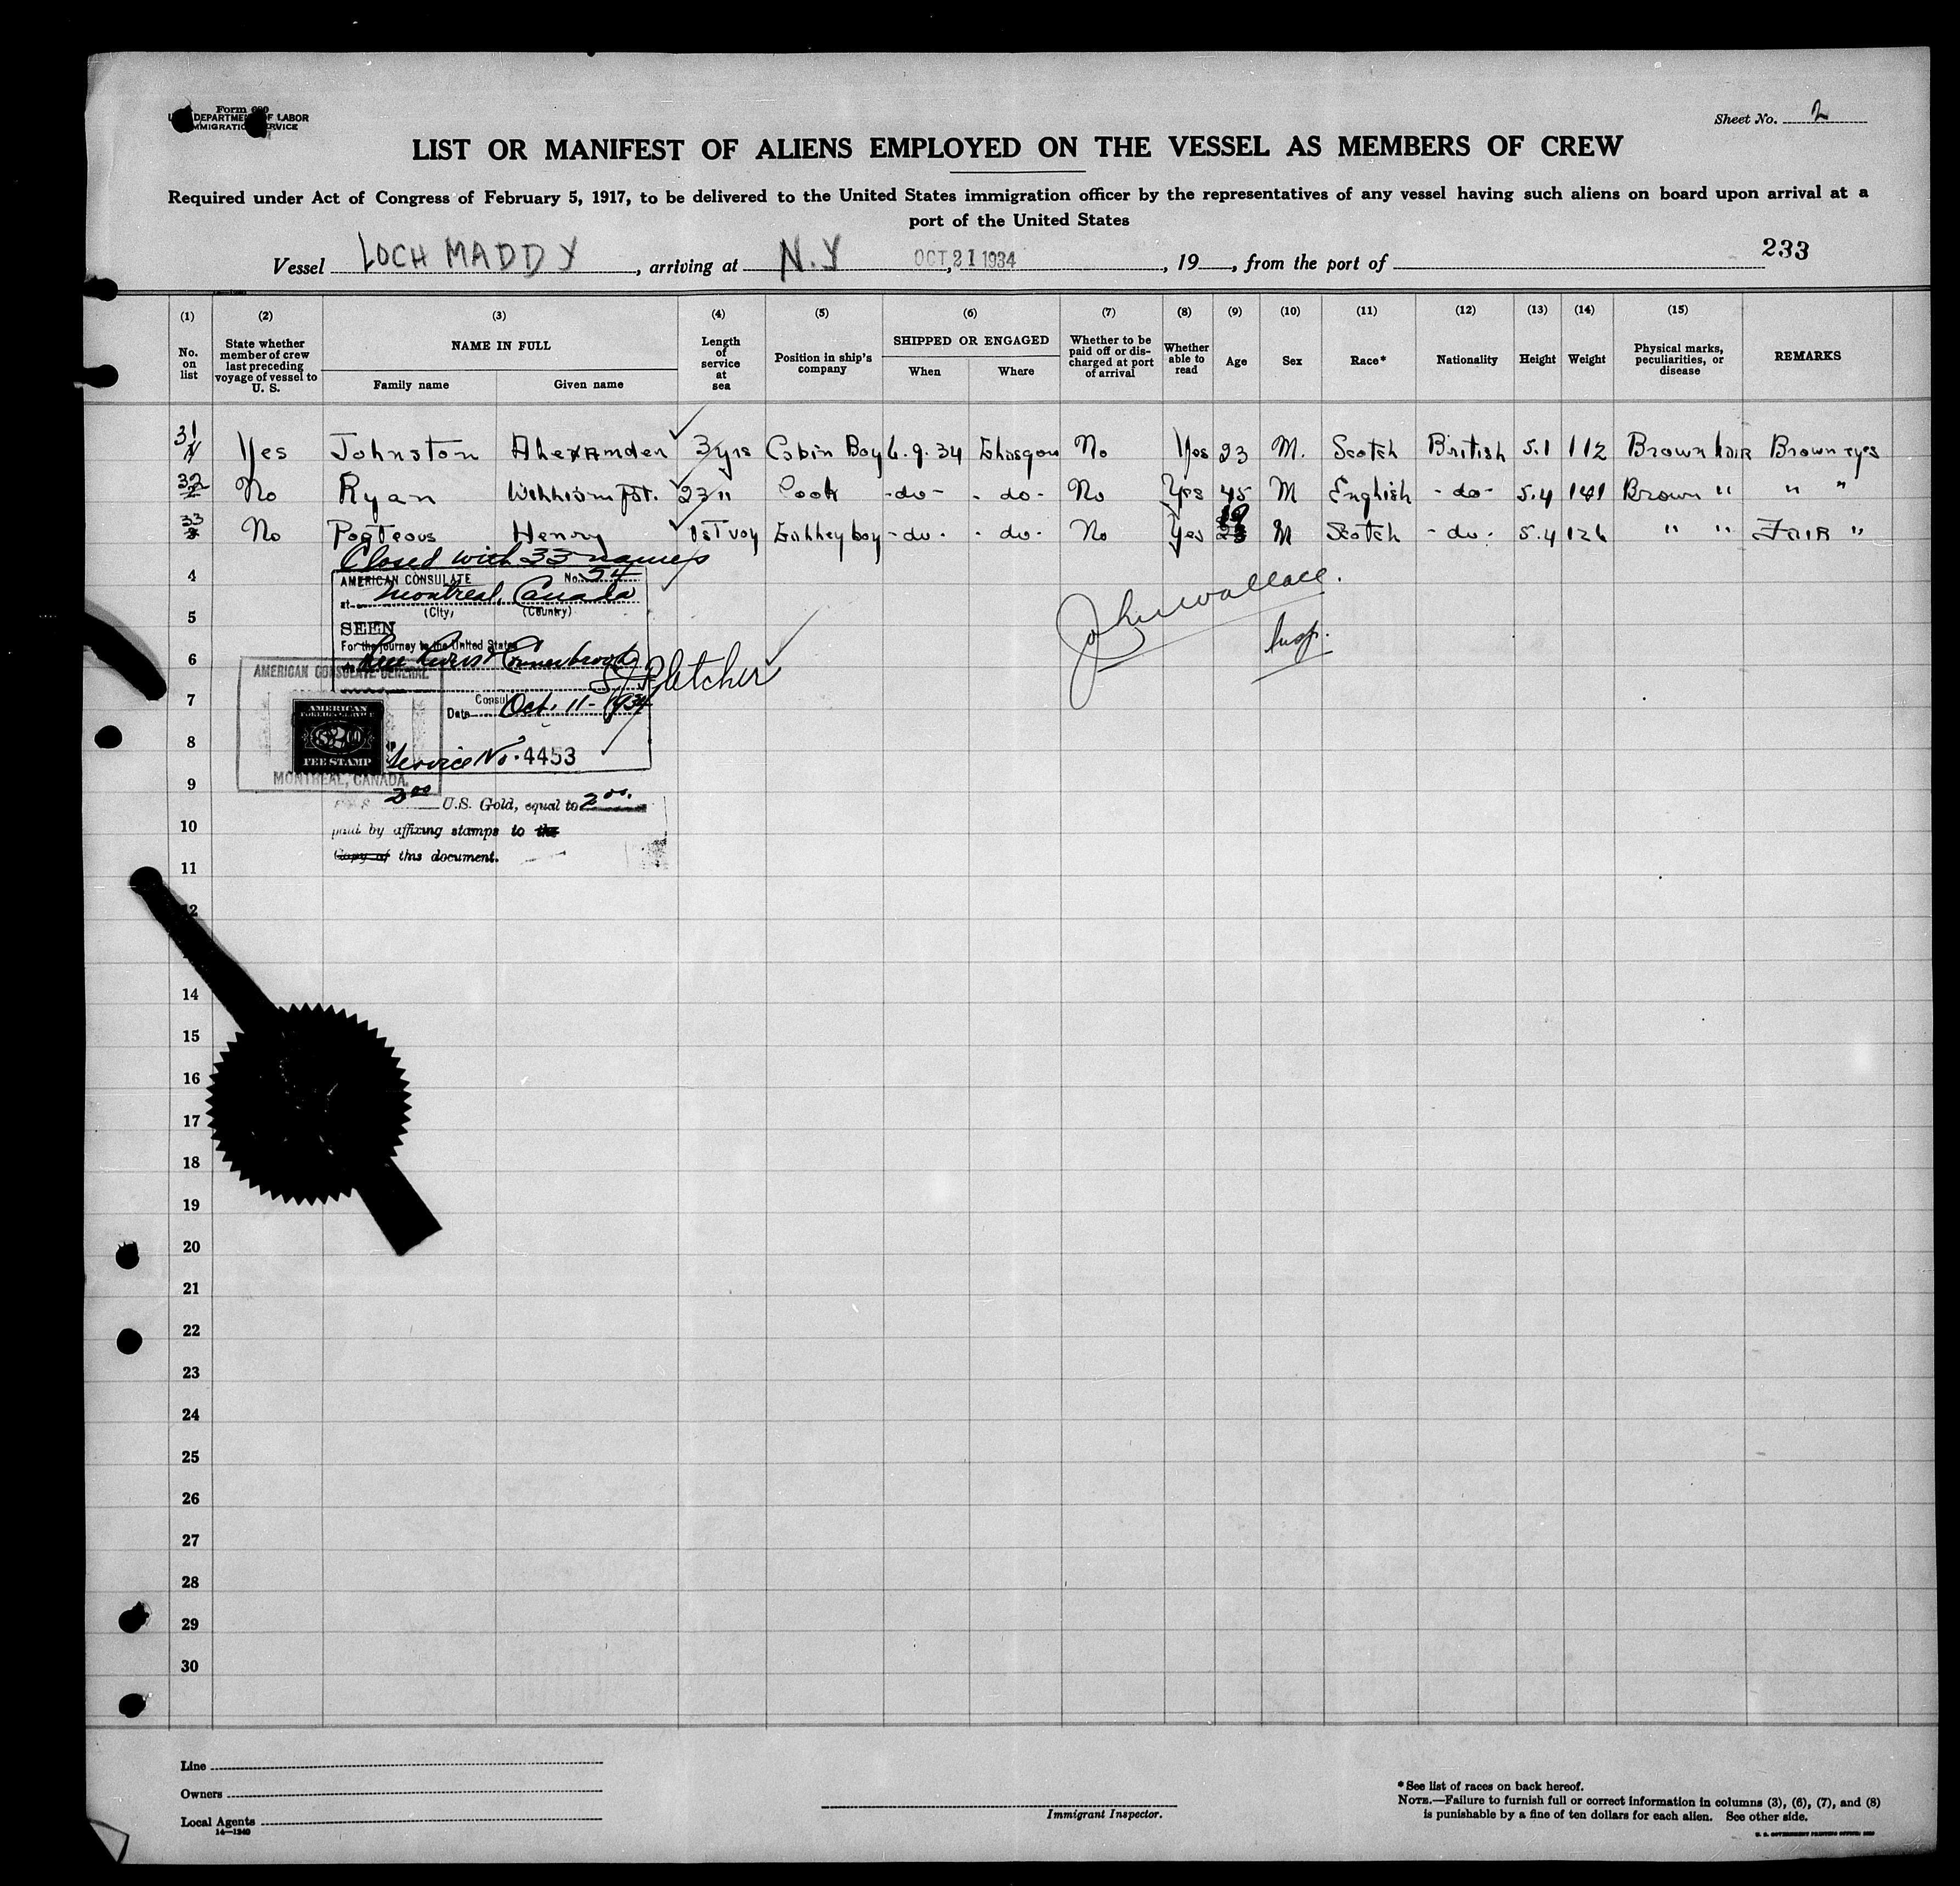 Form 680
U.S. DEPARTMENT OF LABOR
IMMIGRATION SERVICE
Sheet No. 2
LIST OR MANIFEST OF ALIENS EMPLOYED ON THE VESSEL AS MEMBERS OF CREW
Required under Act of Congress of February 5, 1917, to be delivered to the United States immigration officer by the representatives of any vessel having such aliens on board upon arrival at a
port of the United States
Vessel LOCH MADDY, arriving at N.Y OCT 21 1934, 19, from the port of 233
(1) (2) (3) (4) (5) (6) (7) (8) (9) (10) (11) (12) (13) (14) (15)
No. on list State whether member of crew last preceding voyage of vessel to U. S. NAME IN FULL Family name Given name Length of service at sea Position in ship's company SHIPPED OR ENGAGED When Where Whether to be paid off or discharged at port of arrival Whether able to read Age Sex Race* Nationality Height Weight Physical marks, peculiarities, or disease REMARKS
31 Yes Johnston Alexander 3 yrs Cabin Boy 6.9.34 Glasgow No Yes 23 M. Scotch British 5.1 112 Brown hair Brown eyes
32 No Ryan William Pat. 23 " Cook -do- -do- No Yes 45 M English -do- 5.4 141 Brown " " "
33 No Porteous Henry 1st voy Galley boy -do- -do- No Yes 19 M Scotch -do- 5.4 126 " " FAIR "
Closed with 33 names
4
AMERICAN CONSULATE No. 54
at Montreal, Canada
(City, (Country)
5
SEEN
For the journey to the United States
John Wallace.
Insp.
6
AMERICAN CONSULATE GENERAL
Fletcher
7
Consul
Date Oct. 11 - 1934
AMERICAN
FOREIGN SERVICE
$2.00
FEE STAMP
8
Service No. 4453
MONTREAL, CANADA.
9
2 00 U.S. Gold, equal to 2 00.
10
paid by affixing stamps to the
Copy of this document.
11
12
14
15
16
17
18
19
20
21
22
23
24
25
26
27
28
29
30
Line
Owners
Local Agents
14—1240
Immigrant Inspector.
*See list of races on back hereof.
NOTE.—Failure to furnish full or correct information in columns (3), (6), (7), and (8)
is punishable by a fine of ten dollars for each alien. See other side.
U. S. GOVERNMENT PRINTING OFFICE